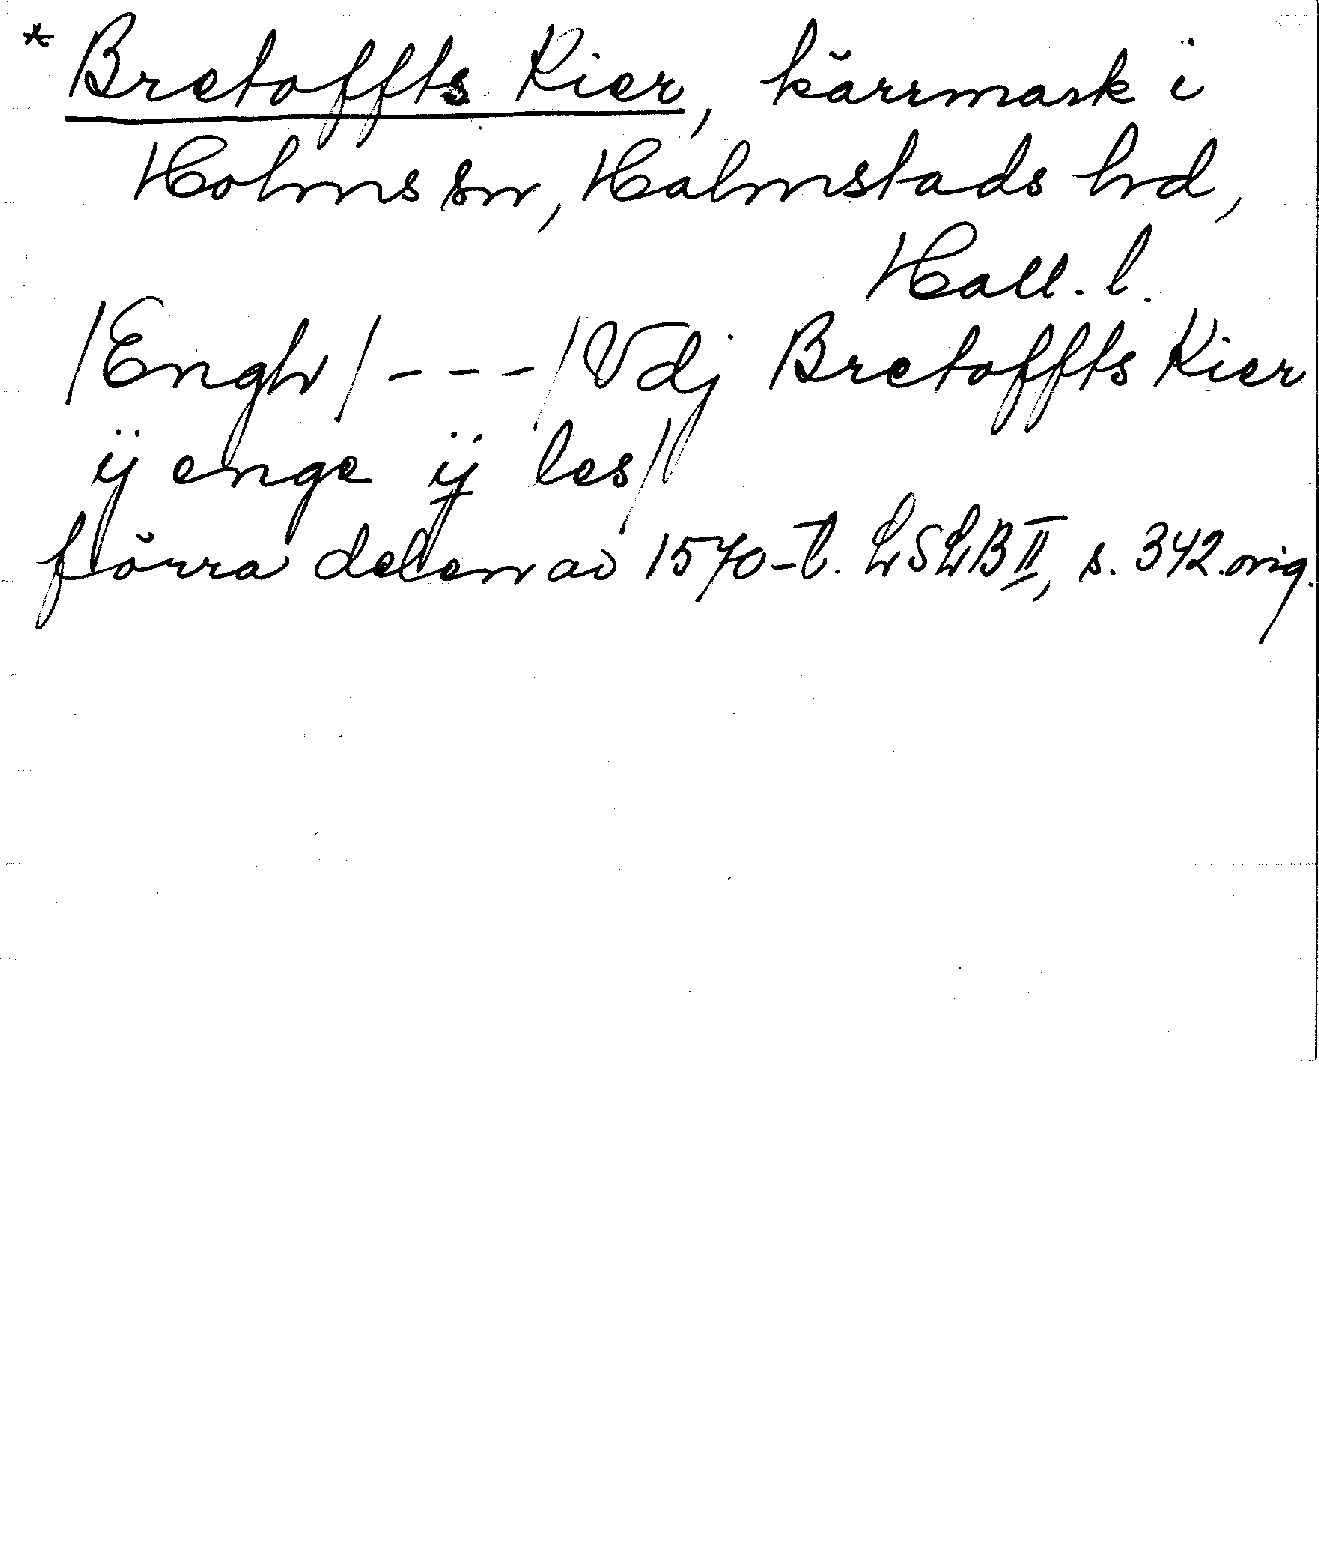 * Bretoffts Kier, kärrmark i
Holms sn, Halmstads hd,
Hall. l.
/Engh/ - - - /Vdj Bretoffts Kier
ij enge ij les/
förra delen av 1570-t. LSLB II, s. 342. orig.